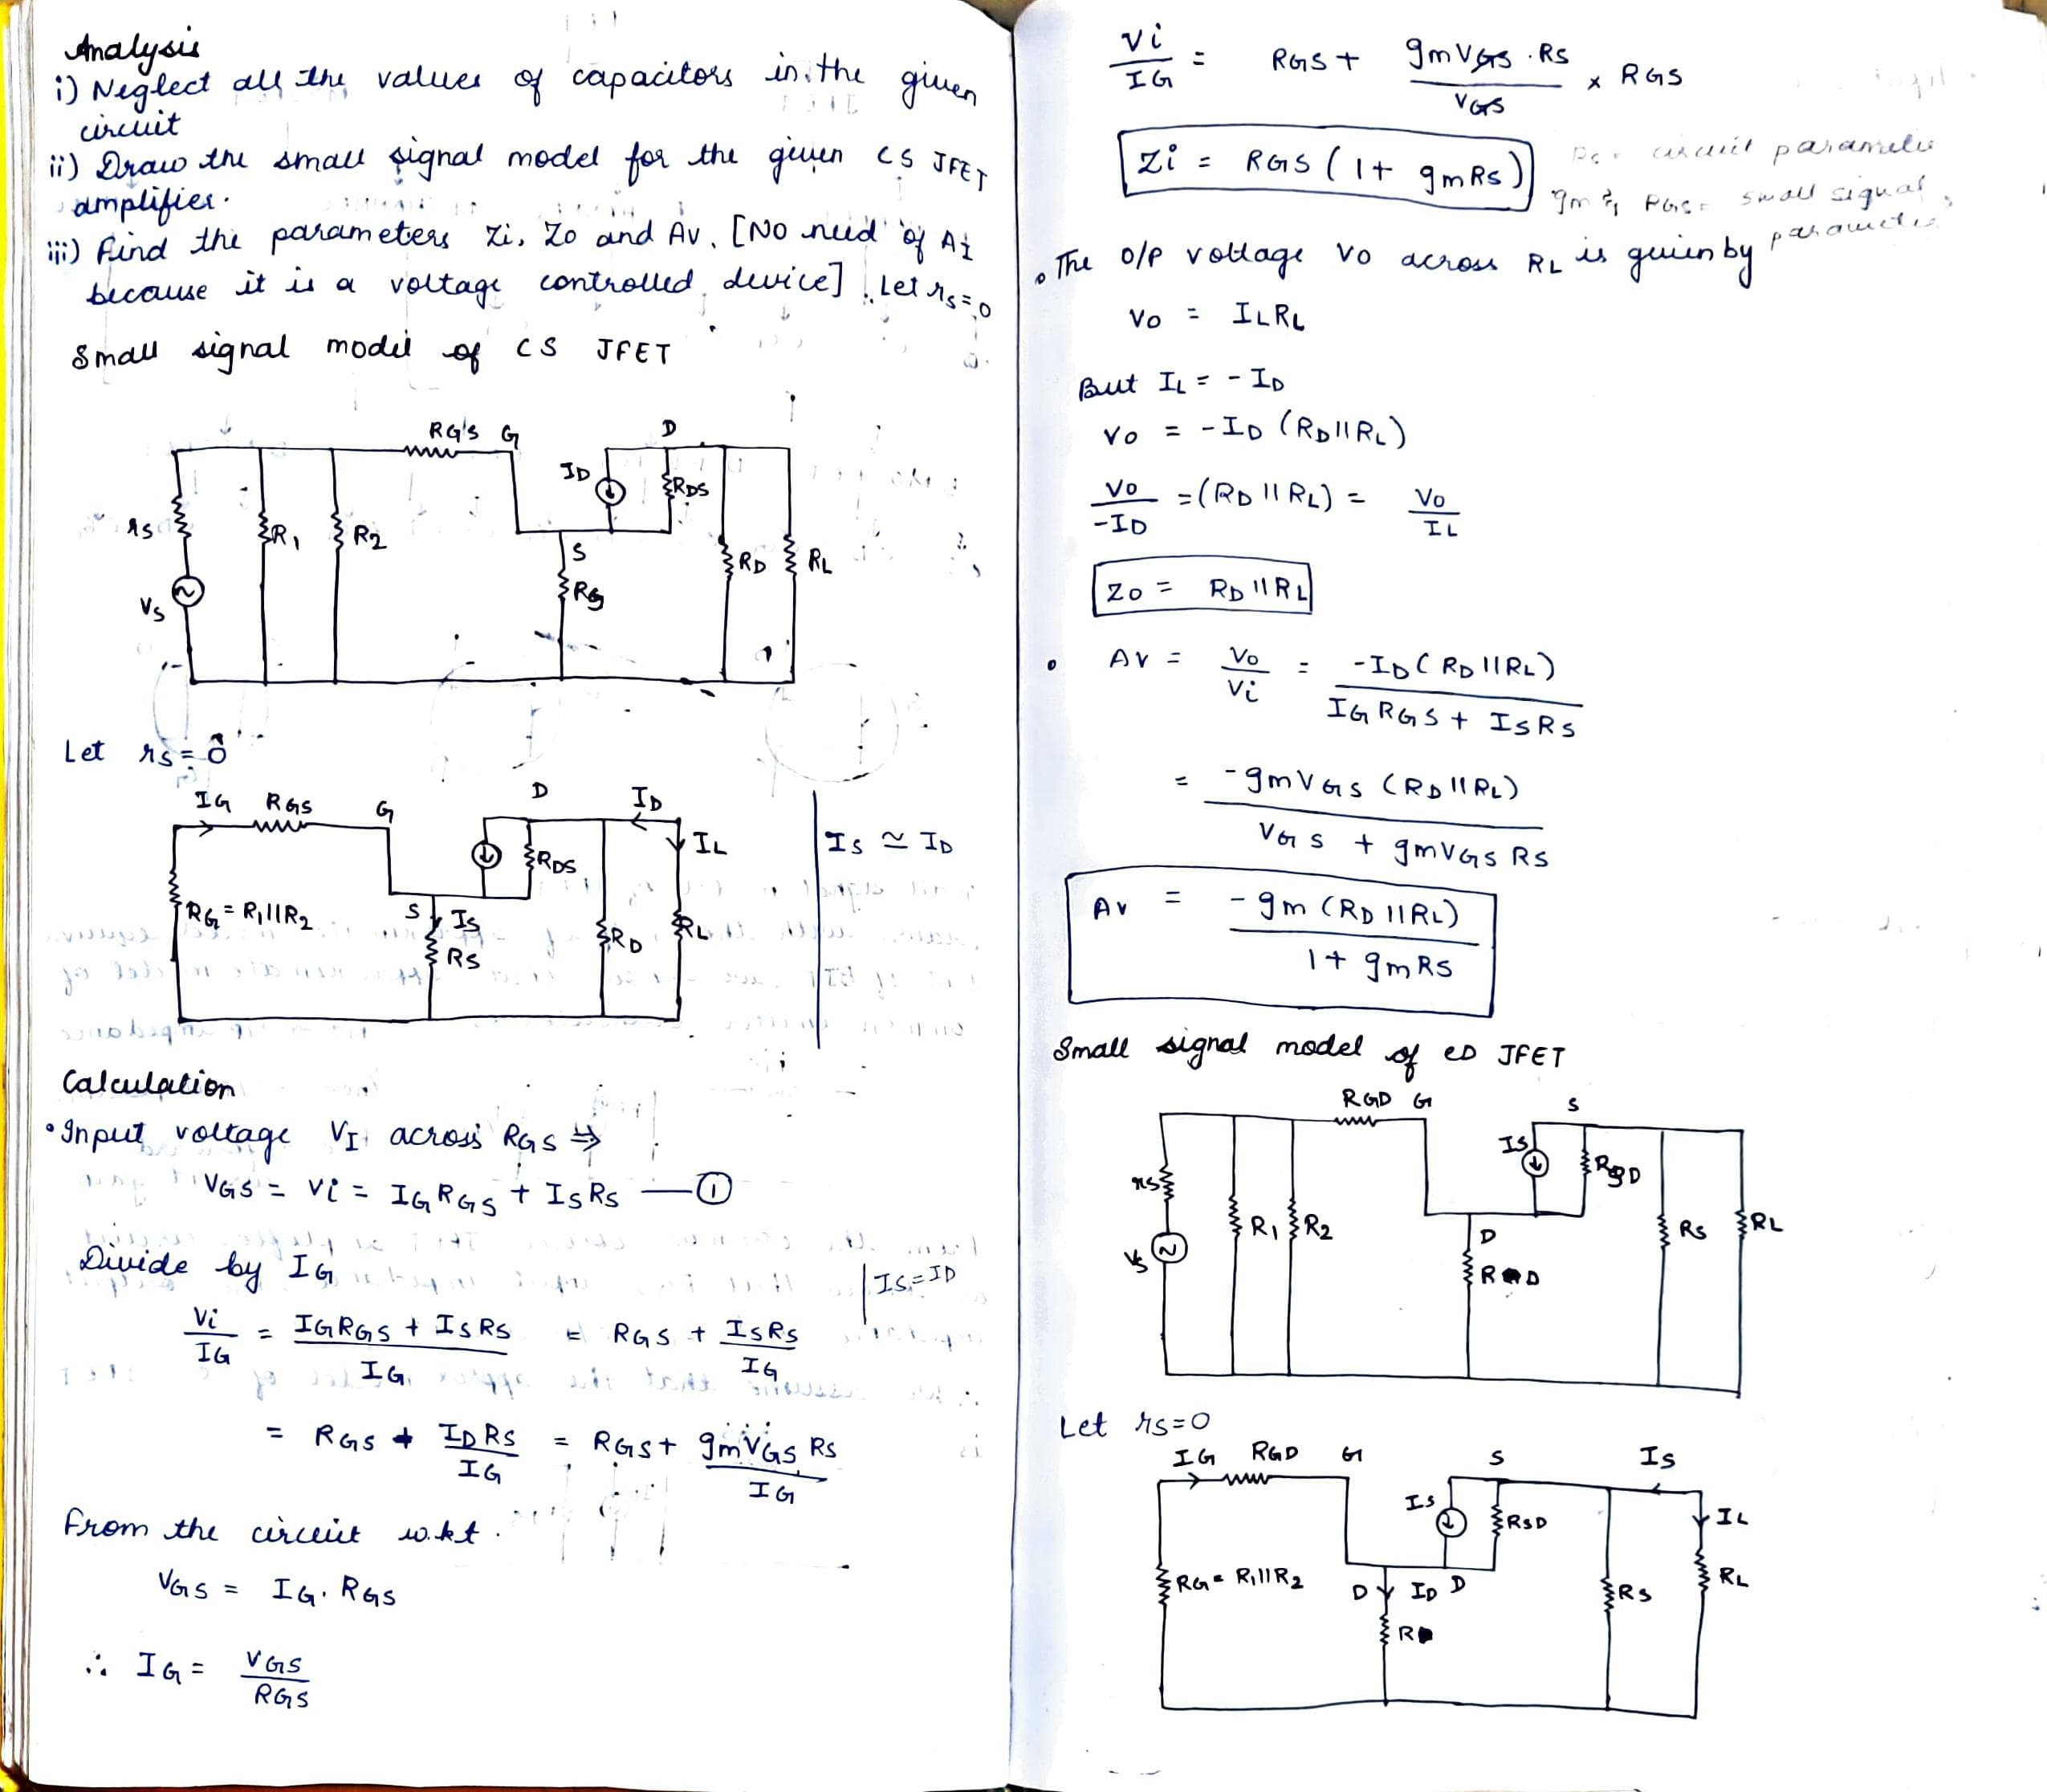 Analysis
i) Neglect all the values of capacitors in the given
circuit
ii) Draw the small signal model for the given CS JFET
amplifier.
iii) Find the parameters Zi, Zo and Av. [No need of AI
because it is a voltage controlled device]. Let rs=0
Small signal model of CS JFET
RG's G
D
ID
RDS
rs
R1
R2
S
RS
RD
RL
Vs
Let rs=0
IG RGS G
D
ID
IL
RDS
IS ≃ ID
RG = R1||R2
S
IS
RS
RD
RL
Calculation
• Input voltage VI across RGS ⇒
VGS = Vi = IG RGS + IS RS —①
Divide by IG
IS=ID
Vi/IG = (IGRGS + ISRS)/IG = RGS + ISRS/IG
= RGS + IDRS/IG = RGS + gmVGS RS/IG
From the circuit w.k.t.
VGS = IG. RGS
∴ IG = VGS/RGS
Vi/IG = RGS + (gmVGS . RS)/VGS x RGS
Zi = RGS (1+ gmRS)
circuit parameter
gm & RGS = small signal
parameter
• The O/P voltage Vo across RL is given by
Vo = ILRL
But IL = - ID
Vo = - ID (RD||RL)
Vo/-ID = (RD||RL) = Vo/IL
Zo = RD||RL
• AV = Vo/Vi = -ID(RD||RL)/(IGRGS + ISRS)
= -gmVGS (RD||RL)/(VGS + gmVGS RS)
Av = -gm (RD||RL)/(1+ gmRS)
Small signal model of CD JFET
RGD G
S
IS
RSD
rs
R1
R2
D
RD
RS
RL
Vs
Let rs=0
IG RGD G
S
IS
IS
RSD
IL
RG = R1||R2
D
ID
D
RD
RS
RL